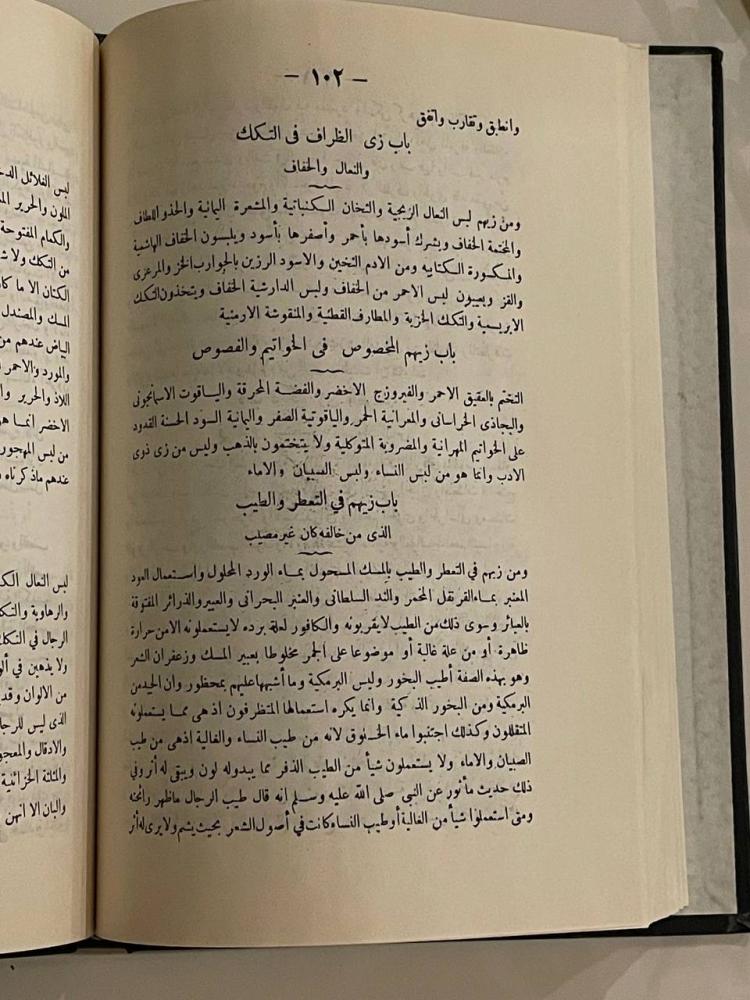 — ١٠٢ —
وانطبق وتقارب واتفق
باب زى الظراف فى التكك
والنعال والخفاف
ومن زيهم لبس النعال الزيجية والثخان الكنباتية والمشعرة اليمانية والحذو اللطاف
والمختمة الخفاف ويشرك أسودها بأحمر وأصفرها بأسود ويلبسون الخفاف الهاشمية
والمكسورة الكتابيه ومن الادم الثخين والاسود الرزين بالجوارب الخز والمرعزى
والقز ويعيبون لبس الاحمر من الخفاف ولبس الدارشية الخفاف ويتخذون التكك
الابريسمية والتكك الخزية والمطارف القطنية والمنقوشة الارمنية
باب زيهم المخصوص فى الخواتيم والفصوص
التختم بالعقيق الاحمر والفيروزج الاخضر والفضة المحرقة والياقوت الاسمانجونى
والبجاذى الخراسانى والمعرانية الحمر والياقوتية الصفر واليمانية السود الحسنة القدود
على الخواتيم المهرانية والمضروبة المتوكلية ولا يتختمون بالذهب وليس من زى ذوى
الادب وانما هو من لبس النساء ولبس الصبيان والاماء
باب زيهم في التعطر والطيب
الذى من خالفه كان غير مصيب
ومن زيهم فى التعطر والطيب بالمسك المسحول بمـاء الورد المحلول واستعمال العود
المعنبر بمـاء القرنقل المخمر والند السلطانى والعنبر البحرانى والعبير والذرائر المفتوقة
بالعبائر وسوى ذلك من الطيب لا يقربونه والكافور لعلة برده لا يستعملونه الا من حرارة
ظاهرة أو من علة غالبة أو موضوعا على الجمر مخلوطا بعبير المسك وزعفران الشعر
وهو بهذه الصفة أطيب البخور وليس البرمكية وما أشبهها عليهم بمحظور وان الجيد من
البرمكية ومن البخور الذكية وانما يكره استعمالها المتظرفون اذ هى ممـا يستعملونه
المتقللون وكذلك اجتنبوا ماء الخلوق لانه من طيب النساء والغالية اذهى من طيب
الصبيان والاماء ولا يستعملون شيأ من الطيب الذفر مما يبدوله لون ويبقى له أثر وفي
ذلك حديث مأثور عن النبي صلى الله عليه وسلم انه قال طيب الرجال ماظهر رائحته
ومتى استعملوا شيأ من الغالية أو طيب النساء كانت في أصول الشعر بحيث يشم ولا يرى له أثر
لبس الغلائل الد
والكمام المفتوحة
من التكك ولا
الكتان الا ما
المسك والمصندل
البياض عندهم من
والمورد والاحمر
اللاذ والحرير
الاخضر انمـا
من لبس المهجور
عندهم ماذ كرناه
لبس النعال
والرهاوية
الرجال في التكك
ولا يذهبن في
من الالوان وقد
الذى ليس للرجا
والادقال والمعجو
والمثلثة الخزائنية
والبان الا انهن